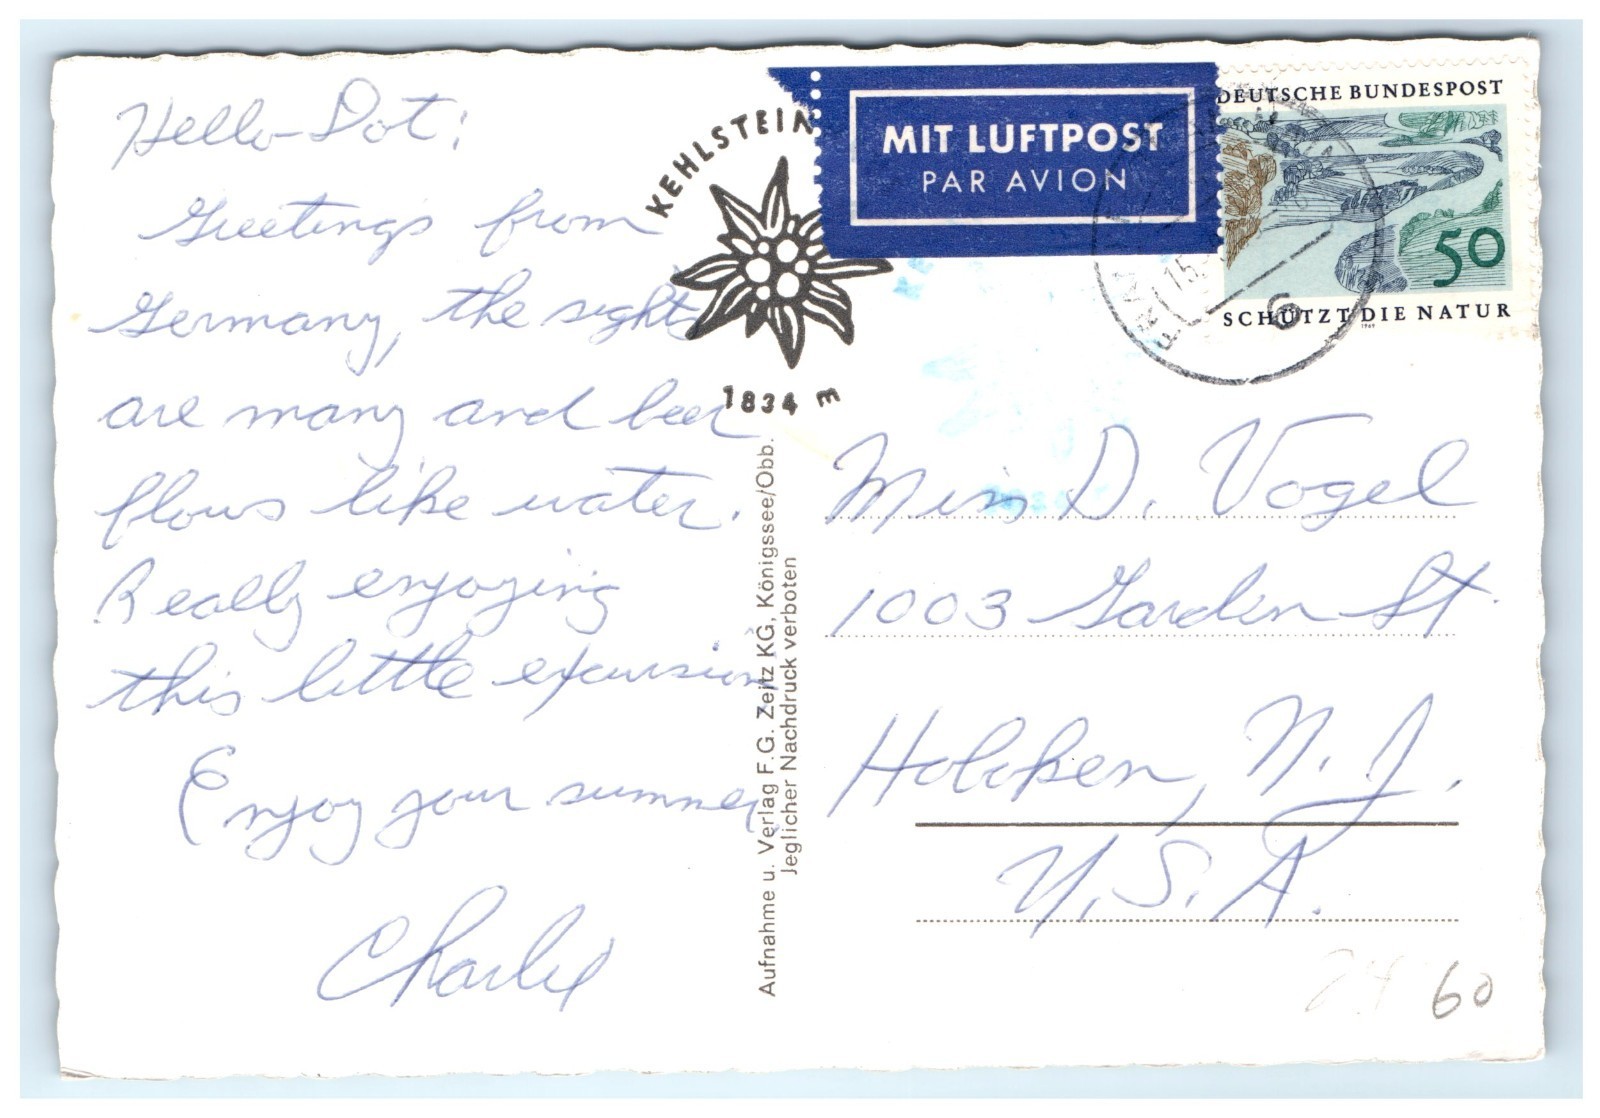 Hello Dot:
Greetings from
Germany, the sights
are many and beer
flows like water.
Really enjoying
this little excursion
Enjoy your summer
Charlie
KEHLSTEIN
1834 m
MIT LUFTPOST
PAR AVION
DEUTSCHE BUNDESPOST
50
SCHÜTZT DIE NATUR
1969
15.
6
Aufnahme u. Verlag F.G. Zeitz KG, Königssee/Obb.
Jeglicher Nachdruck verboten
Miss D. Vogel
1003 Garden St.
Hoboken, N.J.
U.S.A.
60